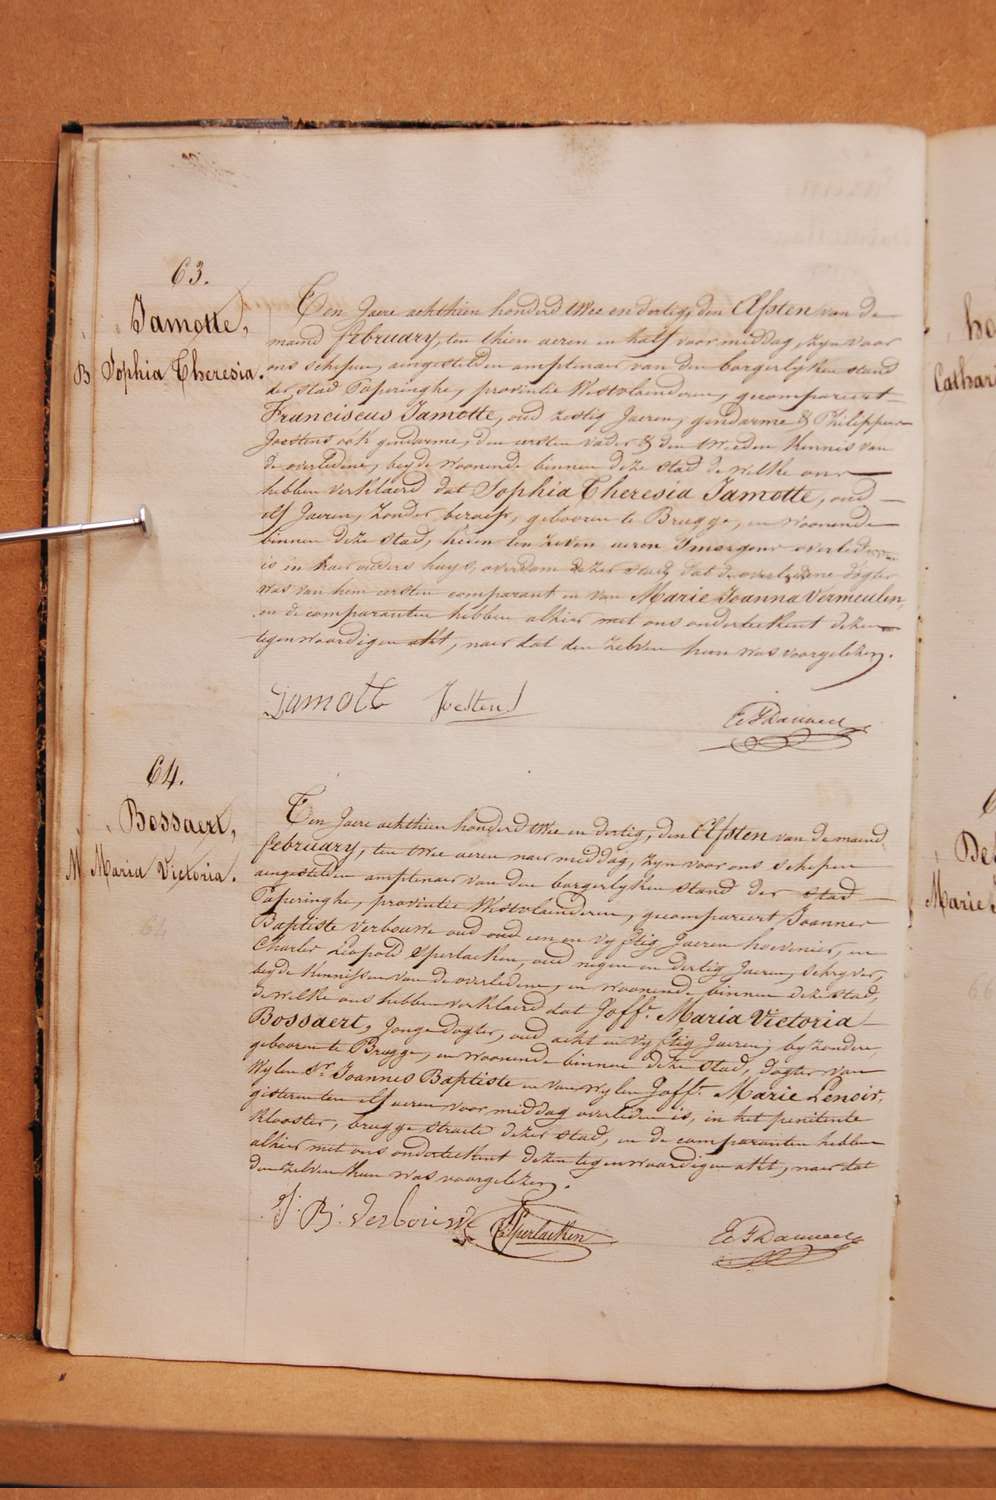 63.
Jamotte,
B Sophia Theresia.
Ten Jaere achthien honderd twee en dertig, den Elfsten van de
maend february, ten thien ueren en half voor middag, zyn voor
ons schepen, aengestelden amptenaer van den borgerlyken stand
der stad Poperinghe, provintie Westvlaenderen, gecompareert
Franciscus Jamotte, oud zestig Jaeren, gendarme & Philippus
Jostens ook gendarme, den eersten vader & den tweeden kennis van
de overledene, beyde woonende binnen deze stad de welke ons
hebben verklaerd dat Sophia Theresia Jamotte, oud
elf Jaeren, zonder beroep, gebooren te Brugge, en woonende
binnen deze stad, heden ten zeven ueren 's morgens overleden
is in haer ouders huys, overdam dezer stad, dat de overledene dogter
was van hem eersten comparant en van Marie Joanna Vermeulen,
en de comparanten hebben alhier met ons onderteekent dezen
tegenwoordigen akt, naer dat den zelven hun was voorgelezen.
Jamott Jostens
64.
Bossaert,
M Maria Victoria.
64
Ten Jaere achthien honderd twee en dertig, den Elfsten van de maend
february, ten twee ueren naer middag, zyn voor ons schepen
aengestelden amptenaer van den borgerlyken stand der stad
Poperinghe, provintie Westvlaenderen, gecompareert Joannes
Baptiste Verbouwe oud oud een en vyftig Jaeren hovenier, en
Charles Leopold Sperlaeken, oud negen en dertig Jaeren, schryver,
beyde kennissen van de overledene, en woonende binnen deze stad,
de welke ons hebben verklaerd dat Joffe. Maria Victoria
Bossaert, Jonge dogter, oud acht en vyftig Jaeren, byzondere,
gebooren te Brugge, en woonende binnen deze stad, dogter van
wylen Sr. Joannes Baptiste en van wylen Joffe. Marie Lenoir,
gisteren ten elf ueren voor middag overleden is, in het penitente
klooster, brugge straete dezer stad, en de comparanten hebben
alhier met ons onderteekent dezen tegenwoordigen akt, naer dat
den zelven hun was voorgelezen.
J: B: Verbouwe Sperlaeken
Cathar
De
Marie
66